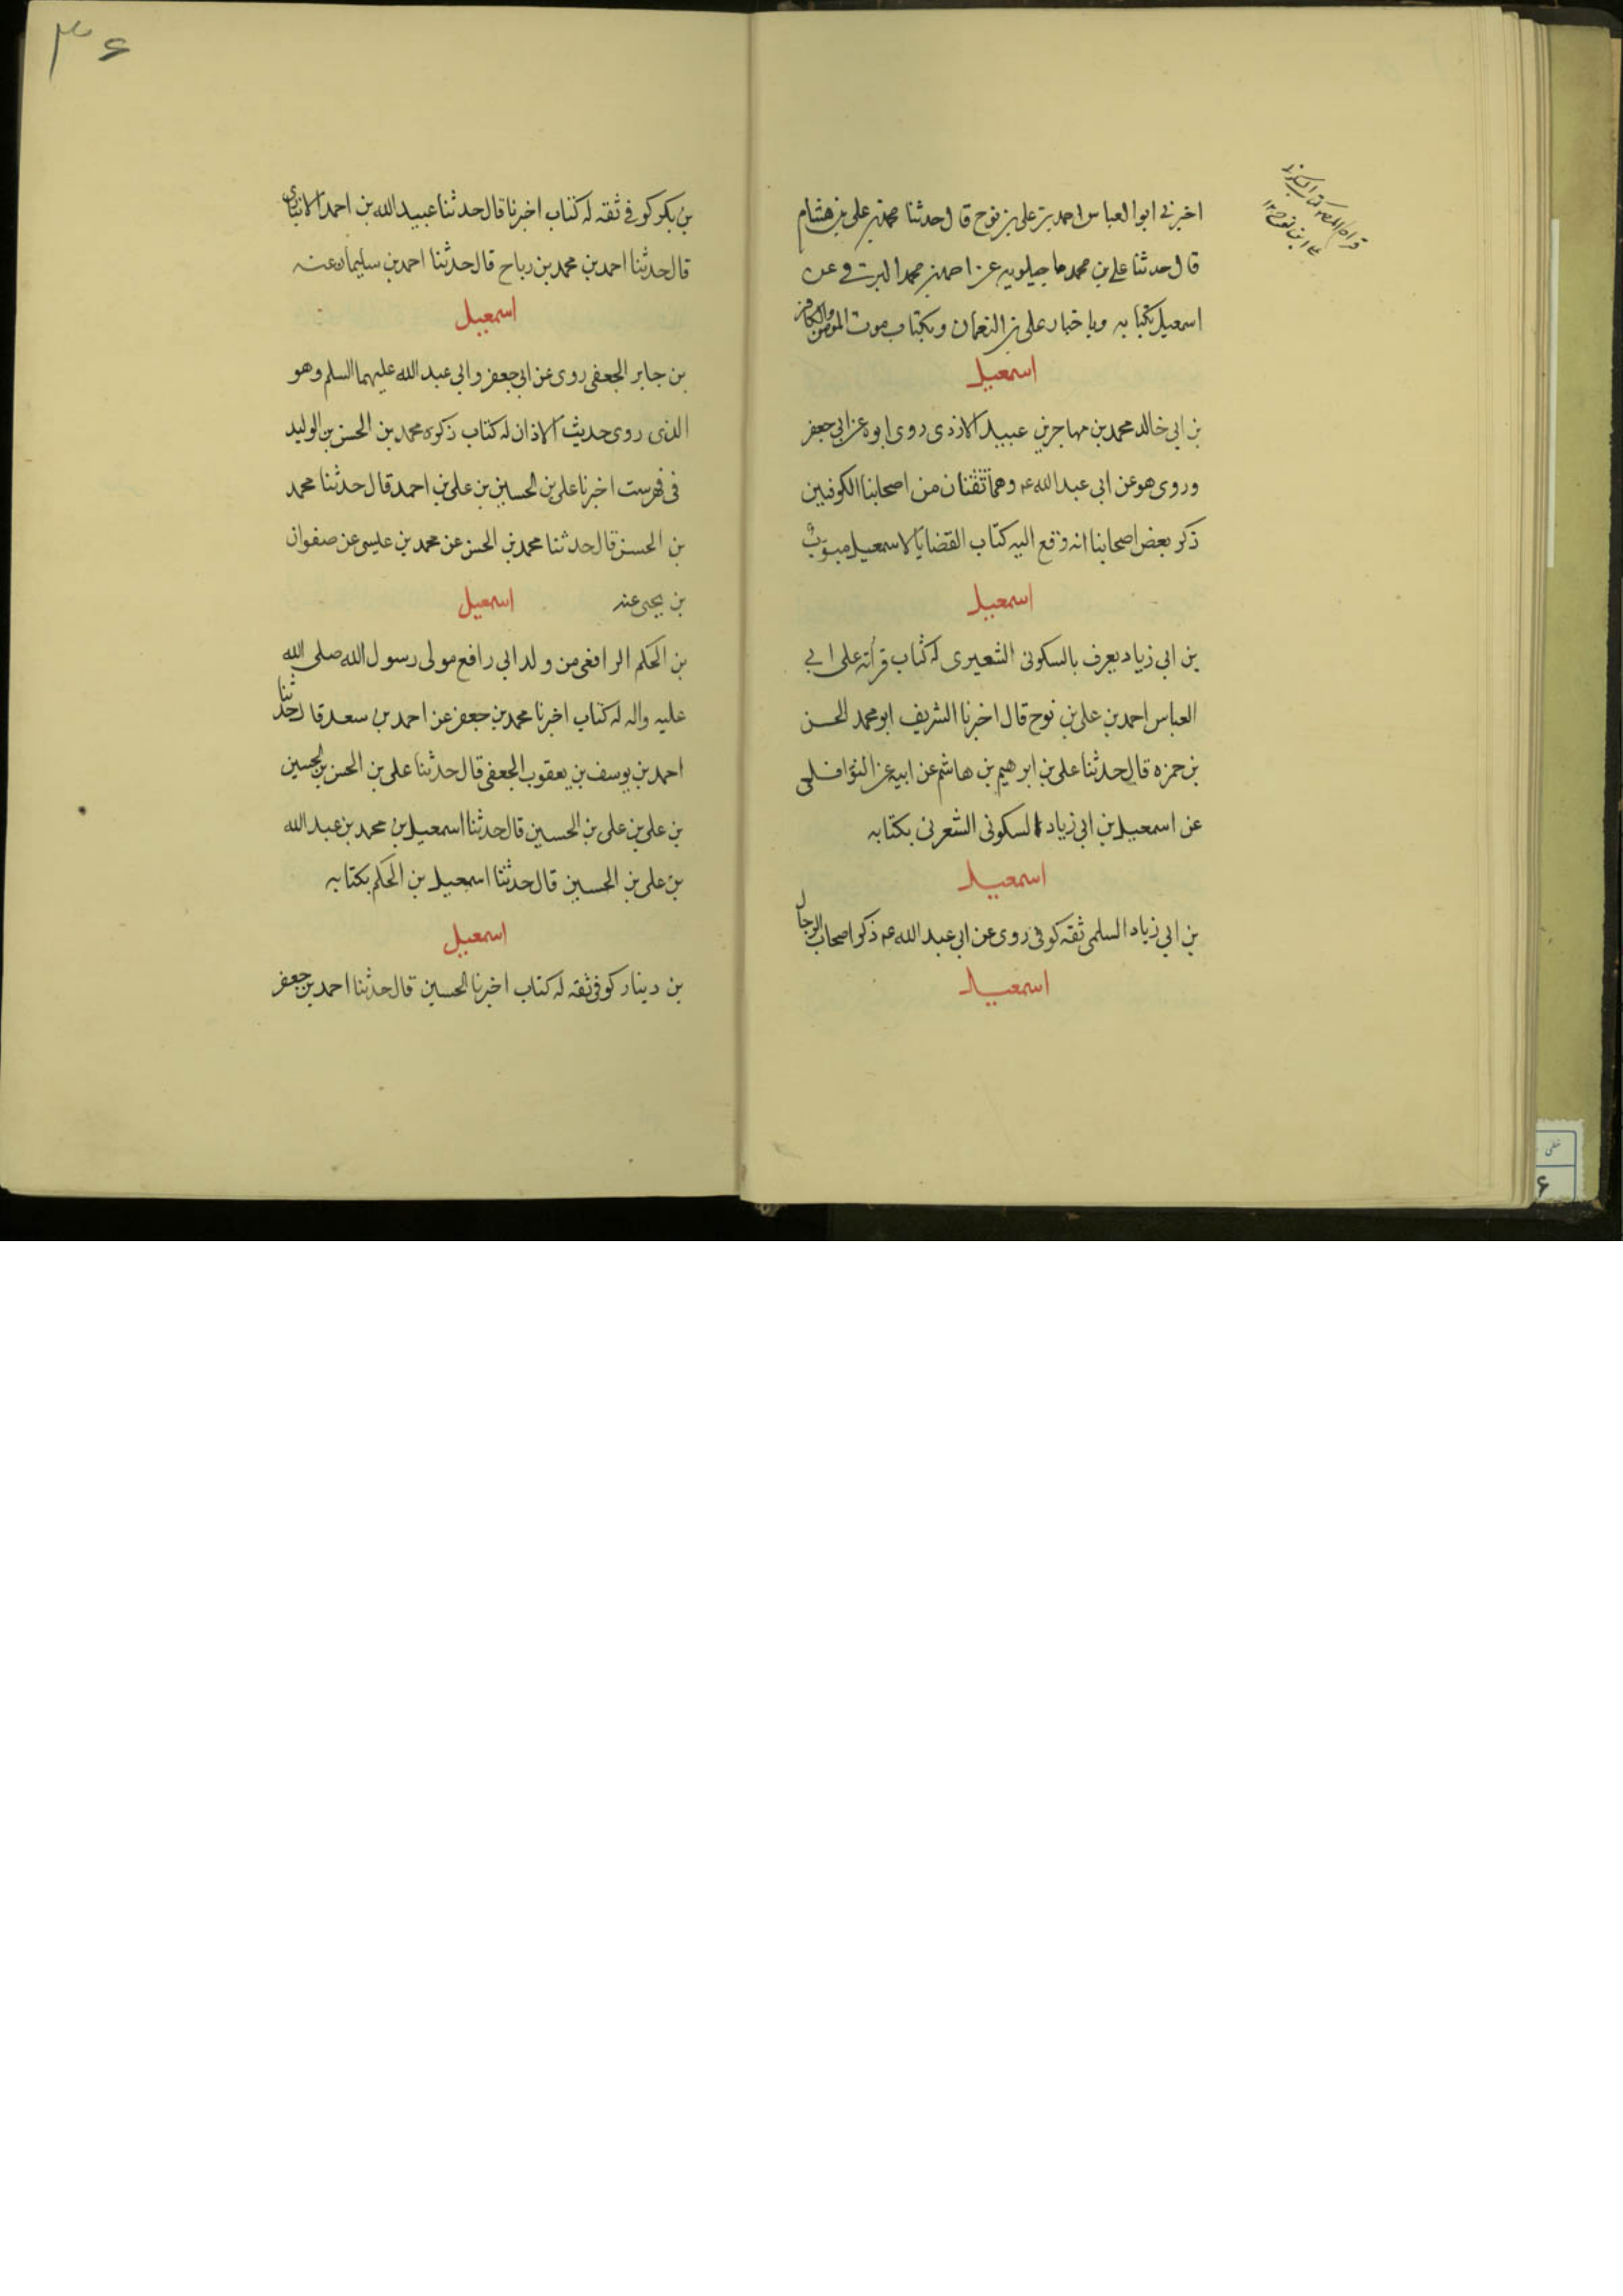 اخبرنى ابوالعباس احمد بن على بن نوح قال حدثنا محمد بن على بن هشام
قال حدثنا على بن محمد ماجيلويه عن احمد بن محمد البرقى عن
اسمعيل بكتابه وباخبار على بن النعمان وبكتاب موت المؤمن والكافر
اسمعيل
بن ابى خالد محمد بن مهاجر بن عبيد الازدى روى ابوه عن ابى جعفر
وروى هو عن ابى عبد الله عه وهما ثقتان من اصحابنا الكوفيين
ذكر بعض اصحابنا انه وقع اليه كتاب القضايا لاسمعيل مبوّبٌ
اسمعيل
بن ابى زياد يعرف بالسكونى الشعيرى له كتاب قرأته على ابى
العباس احمد بن على بن نوح قال اخبرنا الشريف ابو محمد الحسن
بن حمزه قال حدثنا على بن ابرهيم بن هاشم عن ابيه عن النوفلى
عن اسمعيل بن ابى زياد السكونى الشعرى بكتابه
اسمعيل
بن ابى زياد السلمى ثقه كوفى روى عن ابى عبد الله عه ذكر اصحاب الرجال
اسمعيل
٣٦
بن بكر كوفى ثقه له كتاب اخبرنا قال حدثنا عبيد الله بن احمد الانبارى
قال حدثنا احمد بن محمد بن رباح قال حدثنا احمد بن سليمان عنه
اسمعيل
بن جابر الجعفى روى عن ابى جعفر وابى عبد الله عليهما السلم وهو
الذى روى حديث الاذان له كتاب ذكره محمد بن الحسن بن الوليد
فى فهرست اخبرنا على بن الحسين بن على بن احمد قال حدثنا محمد
بن الحسن قال حدثنا محمد بن الحسن عن محمد بن عليسى عن صفوان
بن يحيى عنه اسمعيل
بن الحكم الرافعى من ولد ابى رافع مولى رسول الله صلى الله
عليه واله له كتاب اخبرنا محمد بن جعفر عن احمد بن سعد قال حدثنا
احمد بن يوسف بن يعقوب الجعفى قال حدثنا على بن الحسن بن الحسين
بن على بن على بن الحسين قال حدثنا اسمعيل بن محمد بن عبد الله
بن على بن الحسين قال حدثنا اسمعيل بن الحكم بكتابه
اسمعيل
بن دينار كوفى ثقه له كتاب اخبرنا الحسين قال حدثنا احمد بن جعفر